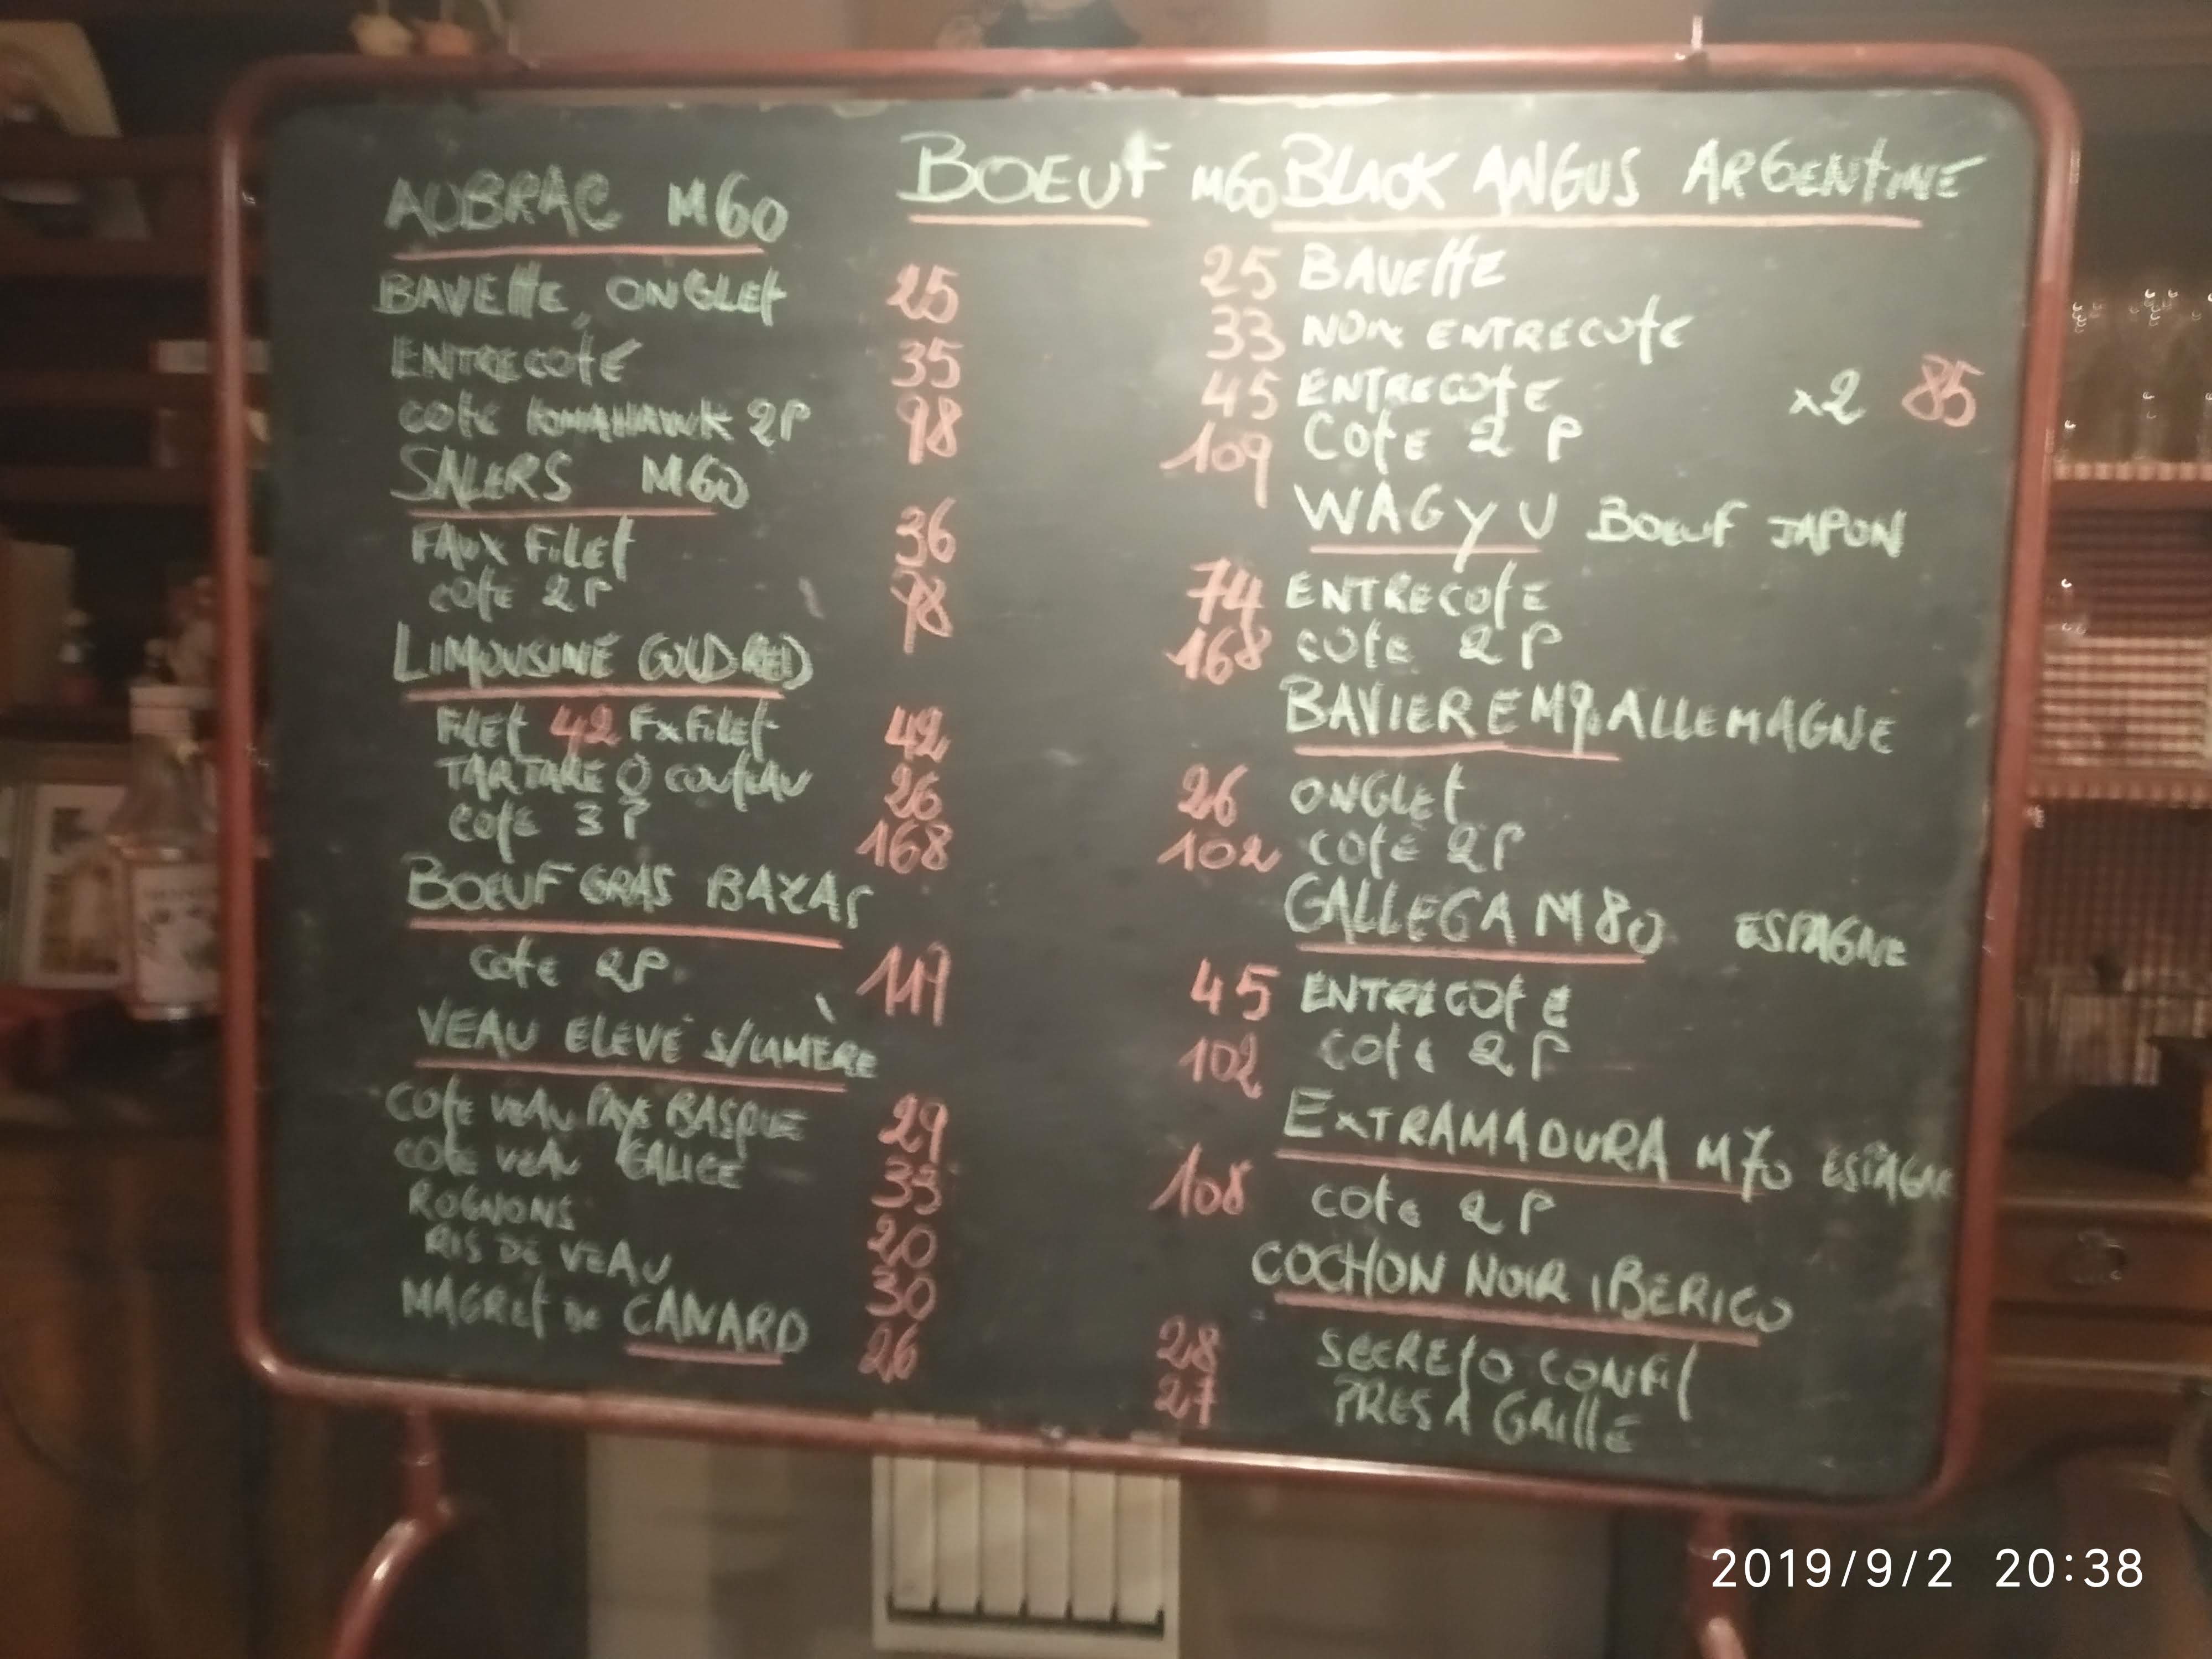 BOEUF
AUBRAC M60
BAVETTE, ONGLET 25
ENTRECOTE 35
COTE TOMAHAWK 2P 98
SALERS M60
FAUX FILET 36
COTE 2P 98
LIMOUSINE GOLD RED
FILET 42 FX FILET 42
TARTARE O COUTEAU 26
COTE 3P 168
BOEUF GRAS BAZAS
COTE 2P. 119
VEAU ELEVÉ S/LA MÈRE
COTE VEAU PAYS BASQUE 29
COTE VEAU GALICE 33
ROGNONS 20
RIS DE VEAU 30
MAGRET DE CANARD 26
M60 BLACK ANGUS ARGENTINE
25 BAVETTE
33 NOIX ENTRECOTE
45 ENTRECOTE x2 85
109 COTE 2 P
WAGYU BOEUF JAPON
74 ENTRECOTE
168 COTE 2P
BAVIERE ALLEMAGNE
26 ONGLET
102 COTE 2P
GALLEGA M80 ESPAGNE
45 ENTRECOTE
102 COTE 2P
EXTRAMADURA M70 ESPAGNE
108 COTE 2P
COCHON NOIR IBERICO
28 SECRETO CONFIT
27 PRESA GRILLE
2019/9/2 20:38